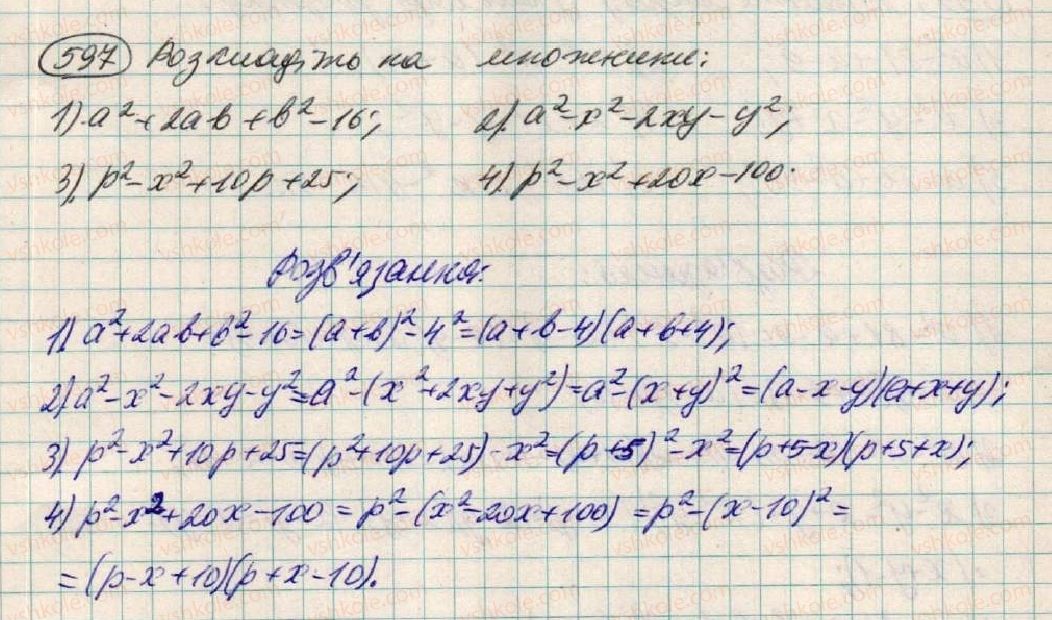 597 Розкладіть на множники:
1) a²+2ab+b²-16; 2) a²-x²-2xy-y²;
3) p²-x²+10p+25; 4) p²-x²+20x-100.
Розв'язання:
1) a²+2ab+b²-16=(a+b)²-4²=(a+b-4)(a+b+4);
2) a²-x²-2xy-y²=a²-(x²+2xy+y²)=a²-(x+y)²=(a-x-y)(a+x+y);
3) p²-x²+10p+25=(p²+10p+25)-x²=(p+5)²-x²=(p+5-x)(p+5+x);
4) p²-x²+20x-100=p²-(x²-20x+100)=p²-(x-10)²=
=(p-x+10)(p+x-10).
vshkole.com